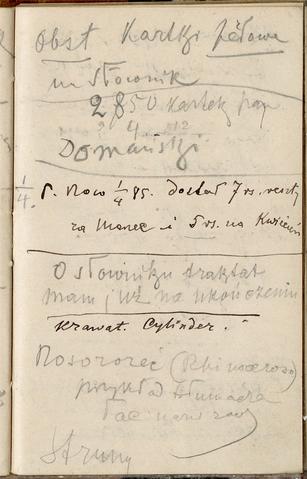 Obst. Kartki żółowe
na słownik
2850 kartek pap
? 4 12
Domański
1/4. P. Now 1/4 85. dostał 7 rs. reszty
za Marzec i 5 rs. na Kwiecień
O słowniku traktat
mam już na ukończeniu
Krawat. Cylinder.
Nosorożec (Rhinoceros)
przykład tłumacza
łac nazw
Struny